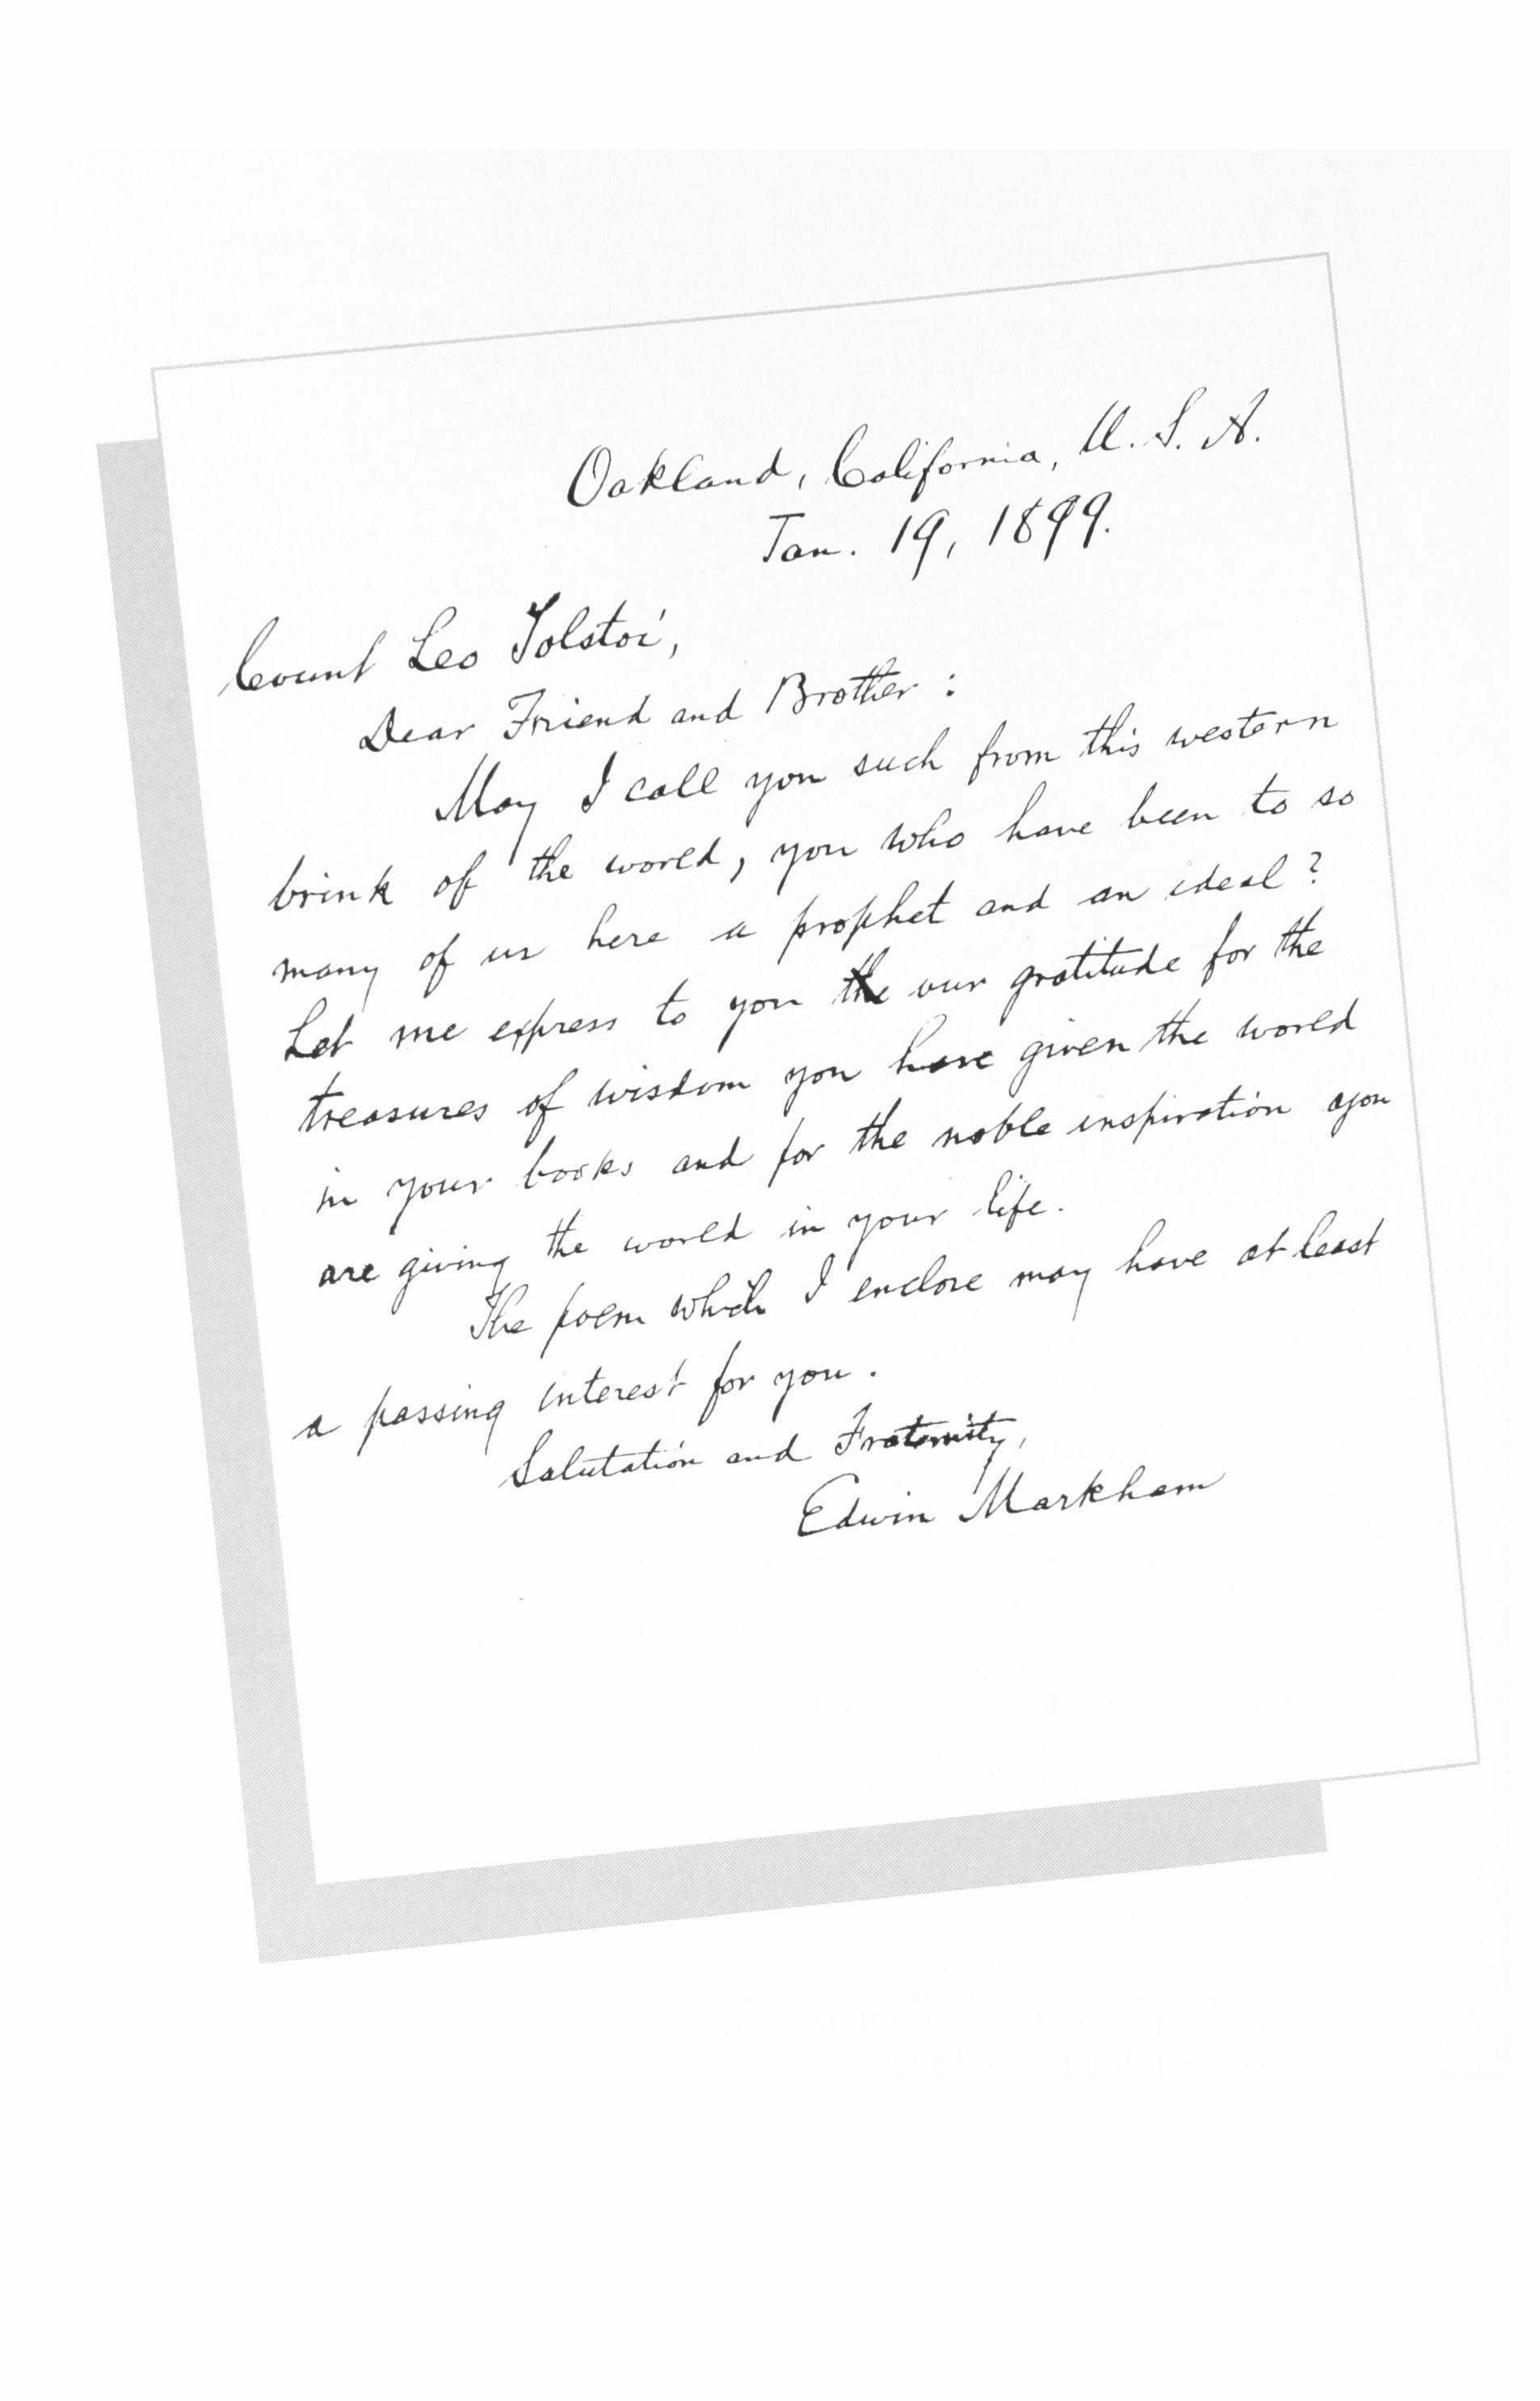 Oakland, California, U. S. A.
Jan. 19, 1899.
Count Leo Tolstoi,
Dear Friend and Brother :
May I call you such from this western
brink of the world, you who have been to so
many of us here a prophet and an ideal?
Let me express to you our gratitude for the
treasures of wisdom you have given the world
in your books and for the noble inspiration you
are giving the world in your life.
The poem which I enclose may have at least
a passing interest for you.
Salutation and Fraternity,
Edwin Markham